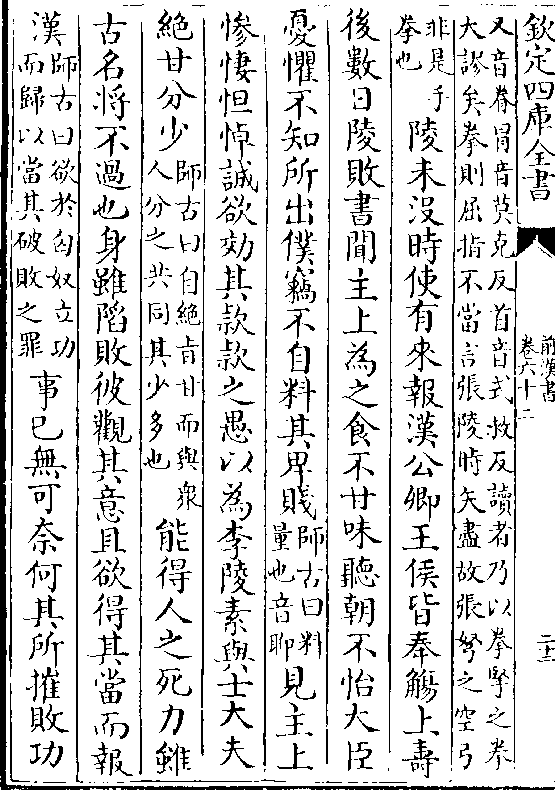 欽定四庫全書
前漢書
卷六十二
二十二
又音眷冒音莫克反首音式救反讀者乃以拳擊之拳
大謬矣拳則屈指不當言張陵時矢盡故張弩之空弓
非是手
拳也
陵未沒時使有來報漢公卿王侯皆奉觴上壽
後數日陵敗書聞主上為之食不甘味聽朝不怡大臣
憂懼不知所出僕竊不自料其卑賤
師古曰料
量也音聊
見主上
慘悽怛悼誠欲効其款款之愚以為李陵素與士大夫
絶甘分少
師古曰自絶㫖甘而與衆
人分之共同其少多也
能得人之死力雖
古名將不過也身雖陷敗彼觀其意且欲得其當而報
漢
師古曰欲於匈奴立功
而歸以當其破敗之罪
事已無可奈何其所摧敗功